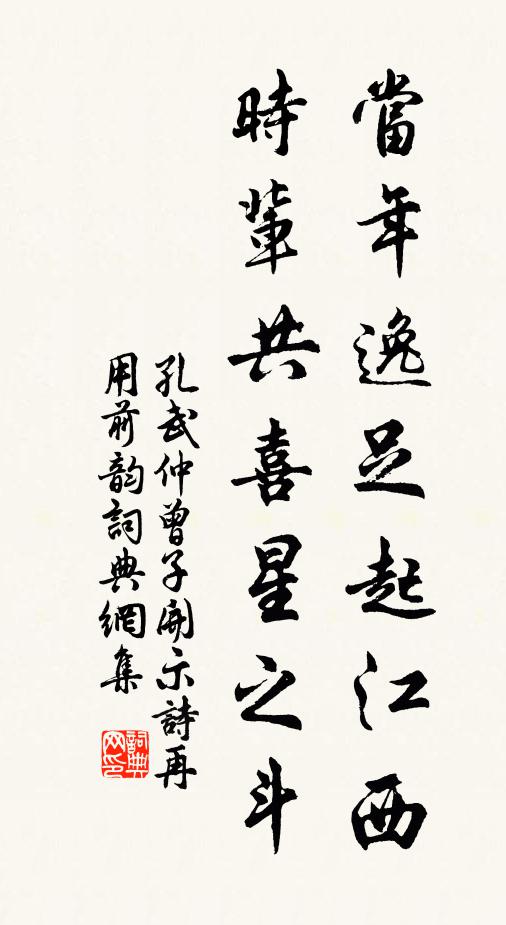 當年逸足起江西
時輩共喜星之斗
孔武仲曾子開示詩再
用前韵詞典網集
詞典網印